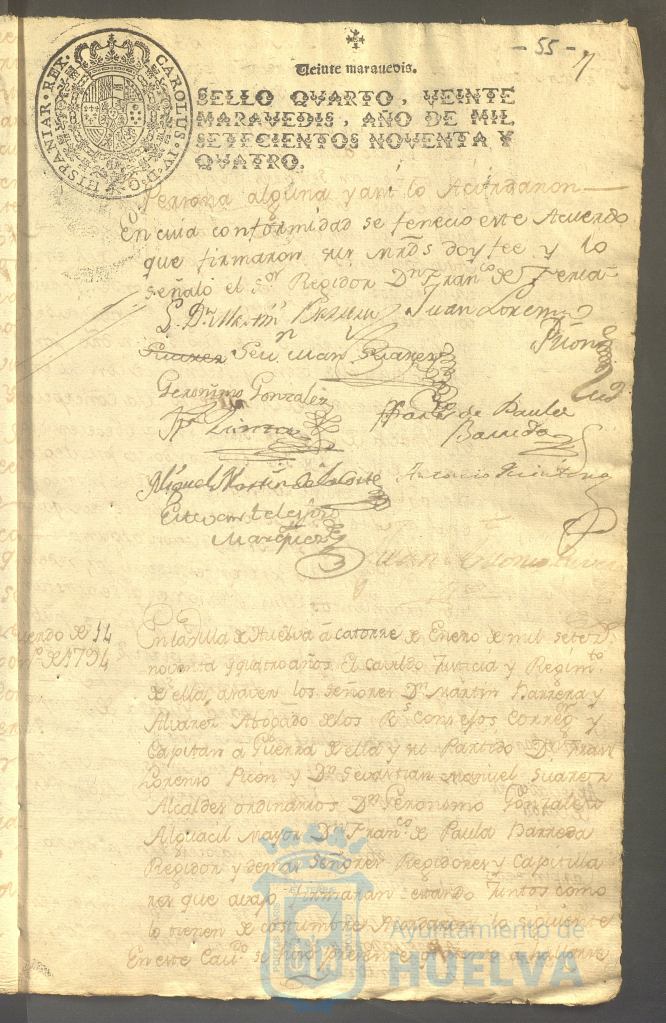 - 55 - 7
Veinte maravedis.
SELLO QVARTO, VEINTE
MARAVEDIS, AÑO DE MIL
SETECIENTOS NOVENTA Y
QVATRO.
CAROLUS IV D G HISPANIAR REX
Persona alguna y así lo Acordaron
En cuia conformidad se fenecio este Acuerdo
que firmaron sus mrds doy fee y lo
señaló el Sor Regidor Dn Franco de Feria
Juan Lorenzo
Picon
Suarez Sevn Man Suarez
Geronimo Gonzalez
Franco de Paula
Barreda
Miguel Martin de la Corte Antonio Quintero
Estevan telesforo
Marquez
Juan Antonio
Acuerdo de 14
Eno de 1794
En la Villa de Huelva á catorze de Enero de mil setezs
noventa y quatro años. El Cavildo Justicia y Regimto
de ella, a saver los Señores Dn Martin Barrera y
Alvarez Abogado de los Rs Consejos Corregr y
Capitan à Guerra de ella y su Partido Dn Juan
Lorenzo Picon y Dn Sevastian Manuel Suarez
Alcaldes ordinarios Dn Geronimo Gonzalez
Alguacil Mayor Dn Franco de Paula Barreda
Regidor y demas Señores Regidores y Capitula
res que avajo firmaran estando Juntos como
lo tienen de costumbre Acordaron lo siguiente
En este Cavdo se hizo presente
Ayuntamiento de
HUELVA